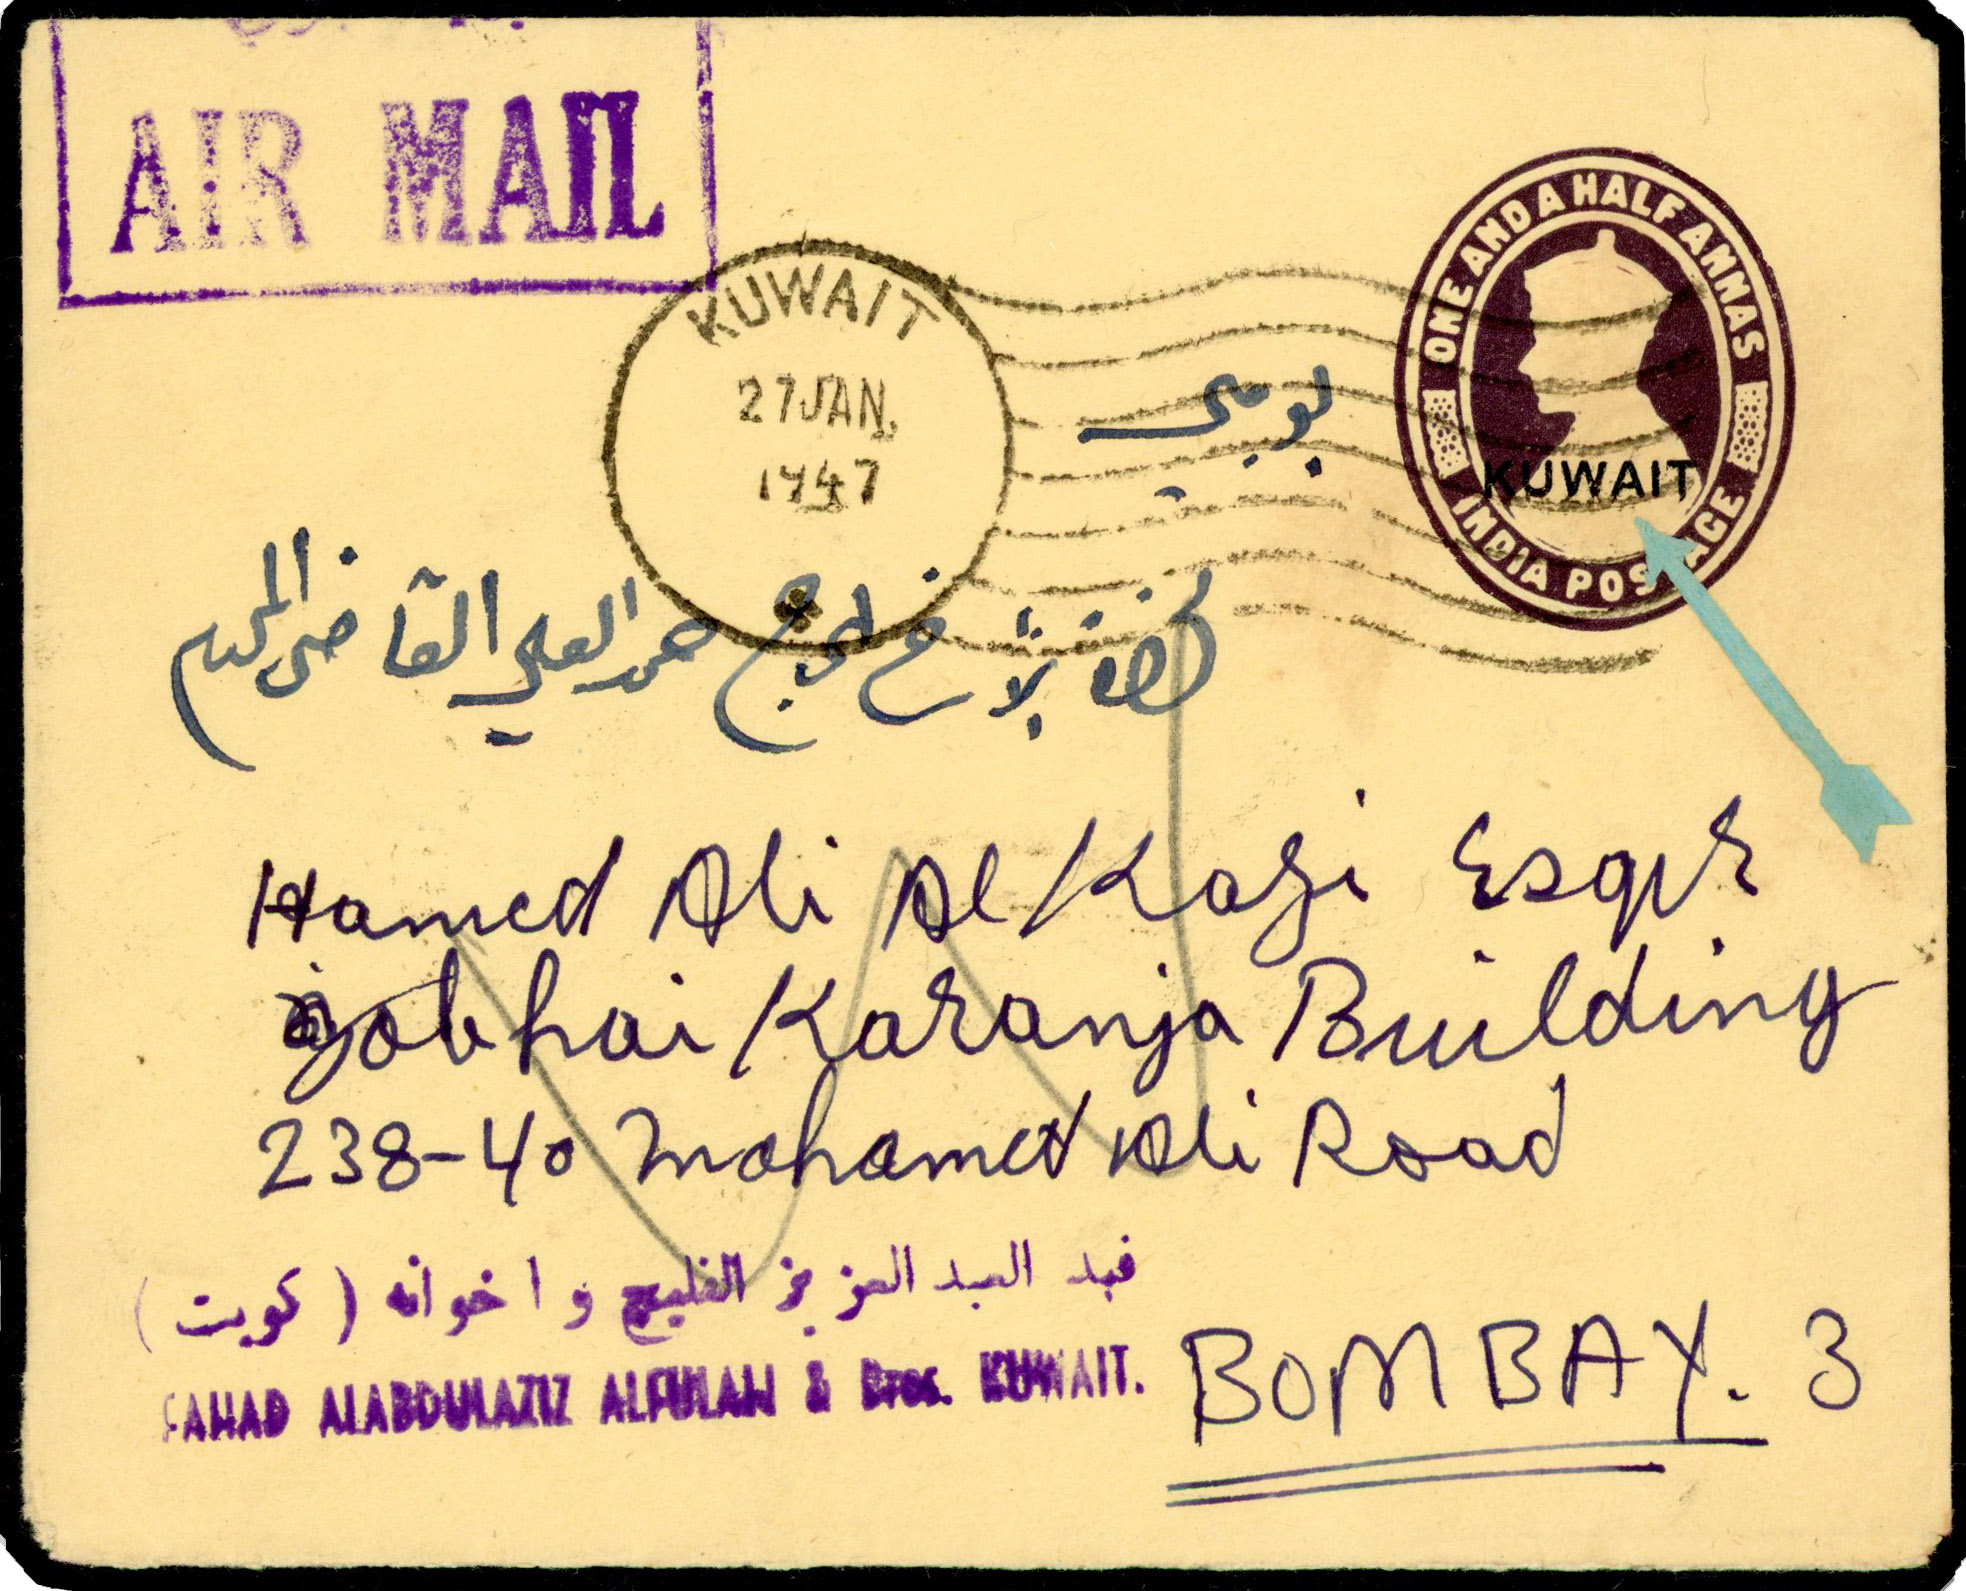 AIR MAIL
KUWAIT
27 JAN.
1947
ONE AND A HALF ANNAS
INDIA POSTAGE
KUWAIT
بومبي
حضرة الأخ الحاج حمد العلي القاضي المحترم
Hamed Ali Al Kazi Esqr
Jobhai Karanja Building
238-40 Mohamed Ali Road
فهد العبد العزيز الفليج واخوانه (كويت)
FAHAD ALABDULAZIZ ALFULAIJ & Bros. KUWAIT.
BOMBAY. 3